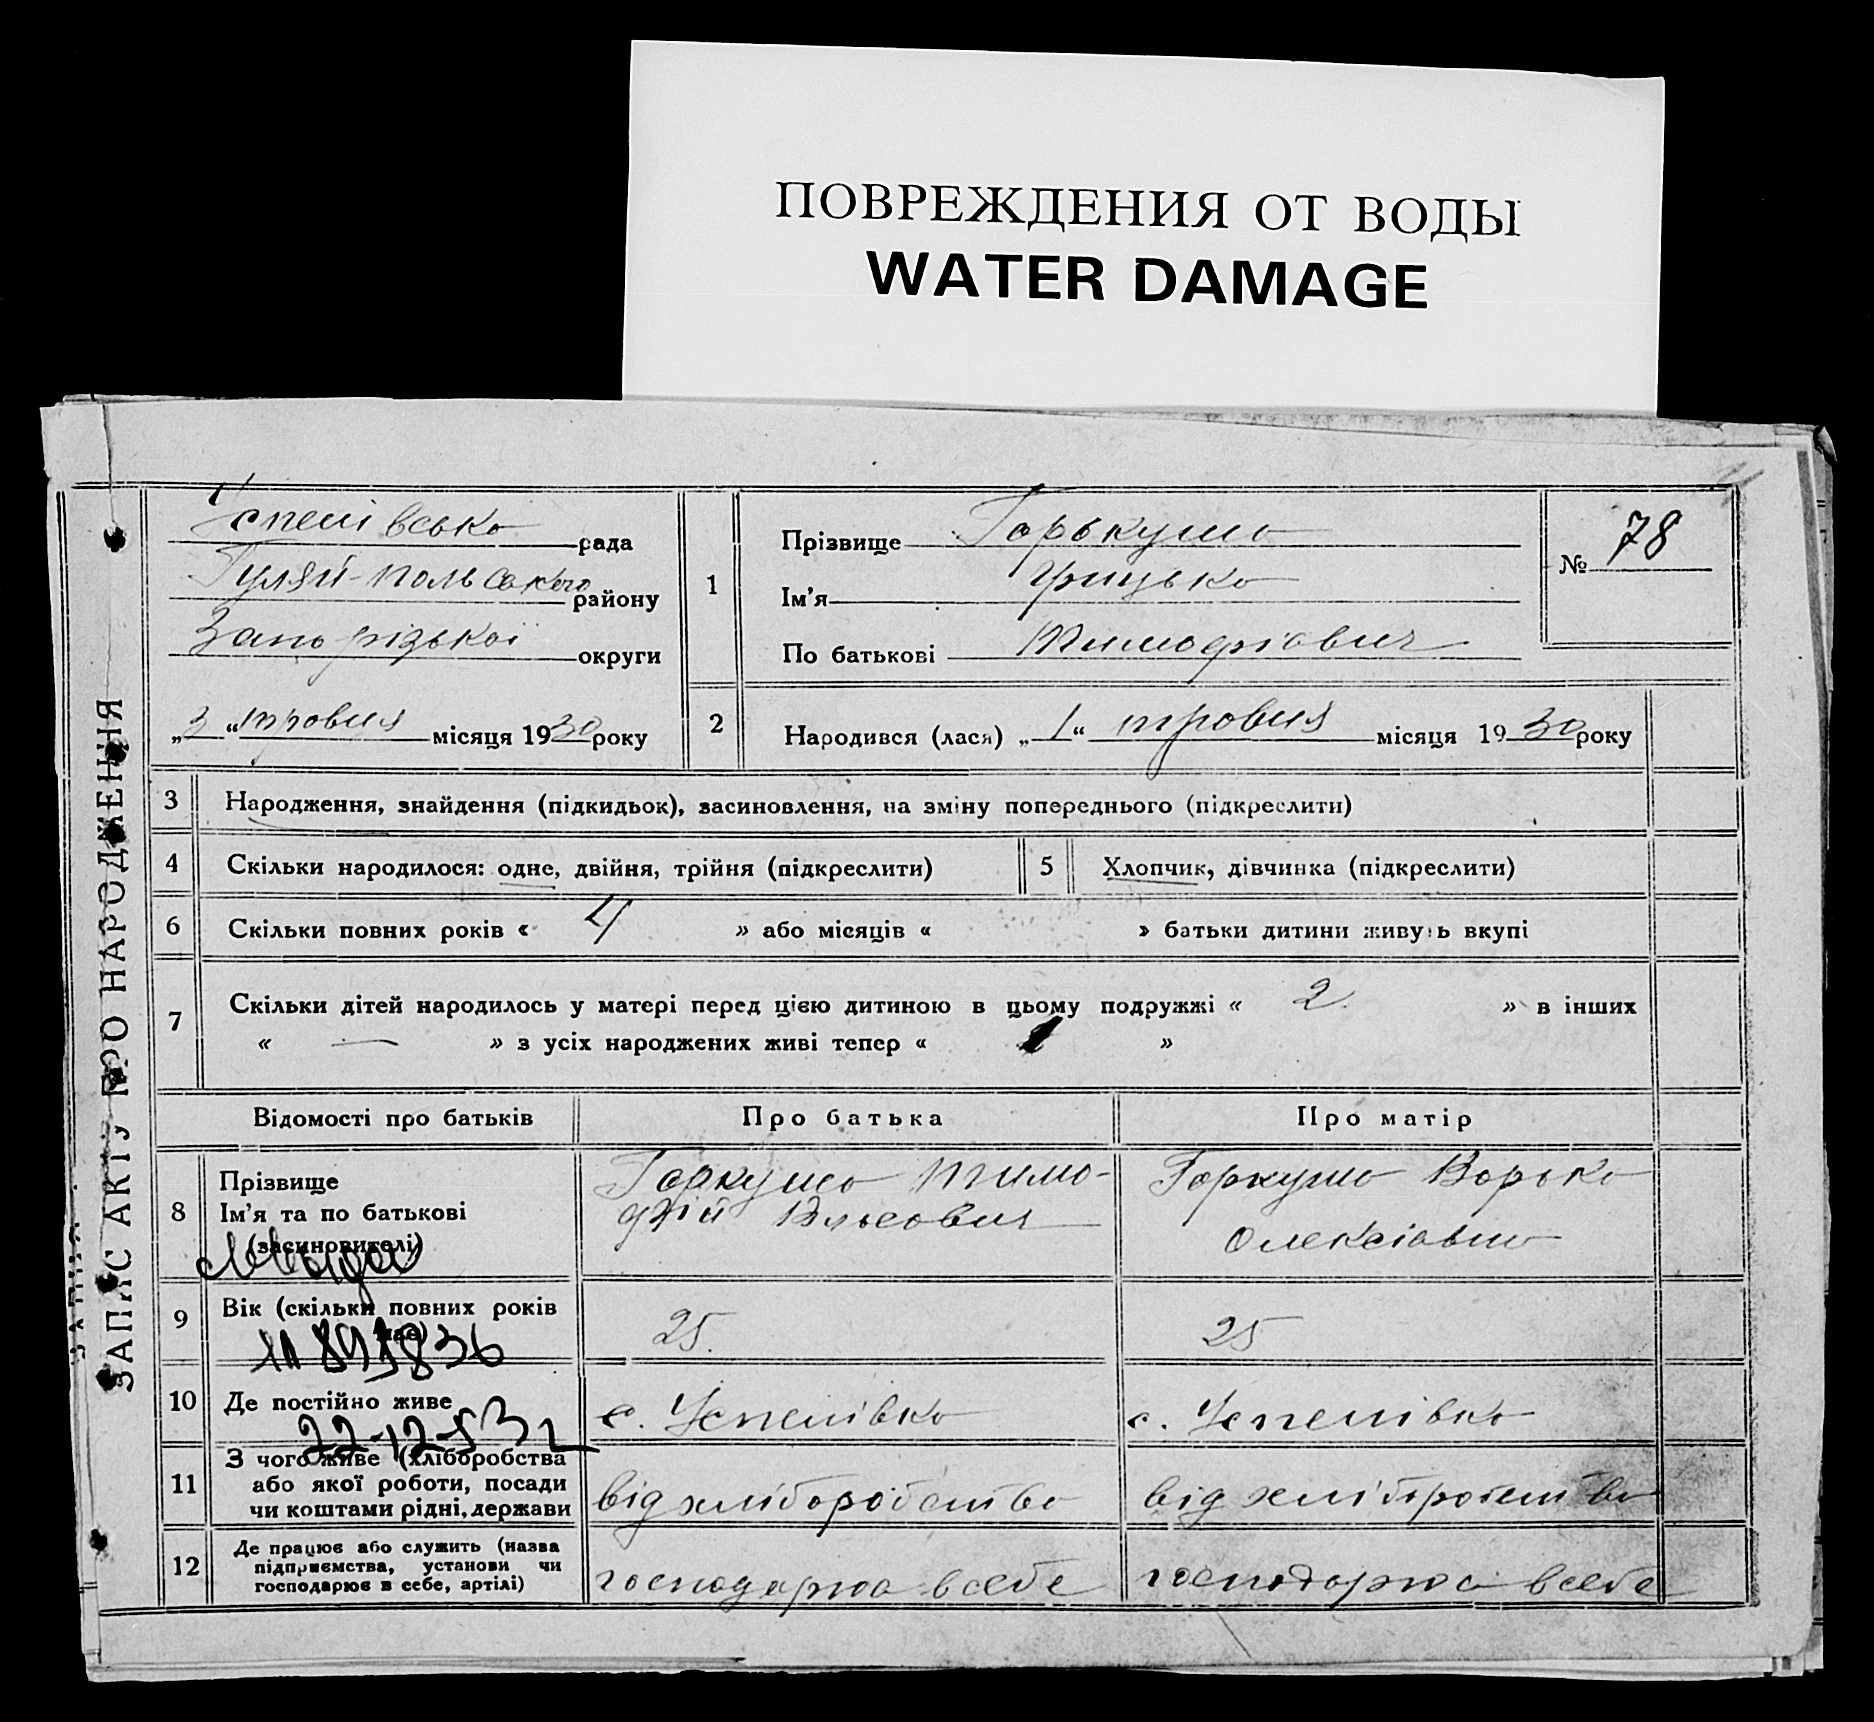 ПОВРЕЖДЕНИЯ ОТ ВОДЫ
WATER DAMAGE
ЗАПИС АКТУ ПРО НАРОДЖЕННЯ
Успенівська рада
Гуляй-Польського району
Запорізької округи
„3“ травня місяця 1930 року
1
Прізвище Горькуша
Ім’я Грицько
По батькові Тимофіович
№ 78
2
Народився (лася) „1“ травня місяця 1930 року
3 Народження, знайдення (підкидьок), засиновлення, на зміну попереднього (підкреслити)
4 Скільки народилося: одне, двійня, трійня (підкреслити)
5 Хлопчик, дівчинка (підкреслити)
6 Скільки повних років « 4 » або місяців « » батьки дитини живуть вкупі
7 Скільки дітей народилось у матері перед цією дитиною в цьому подружжі « 2 » в інших
« — » з усіх народжених живі тепер « »
Відомості про батьків Про батька Про матір
8 Прізвище
Ім’я та по батькові
(засиновителі)
Горкуша Тимо-
фій Власович
Горкуша Варька
Олексіовна
9 Вік (скільки повних років
має)
25.
25
10 Де постійно живе
с. Успенівка
с. Успенівка
22-12-53
11 З чого живе (хліборобства
або якої роботи, посади
чи коштами рідні, держави
від хліборобства
від хліборобства
12 Де працює або служить (назва
підприємства, установи чи
господарює в себе, артілі)
господарює в себе
господарює в себе